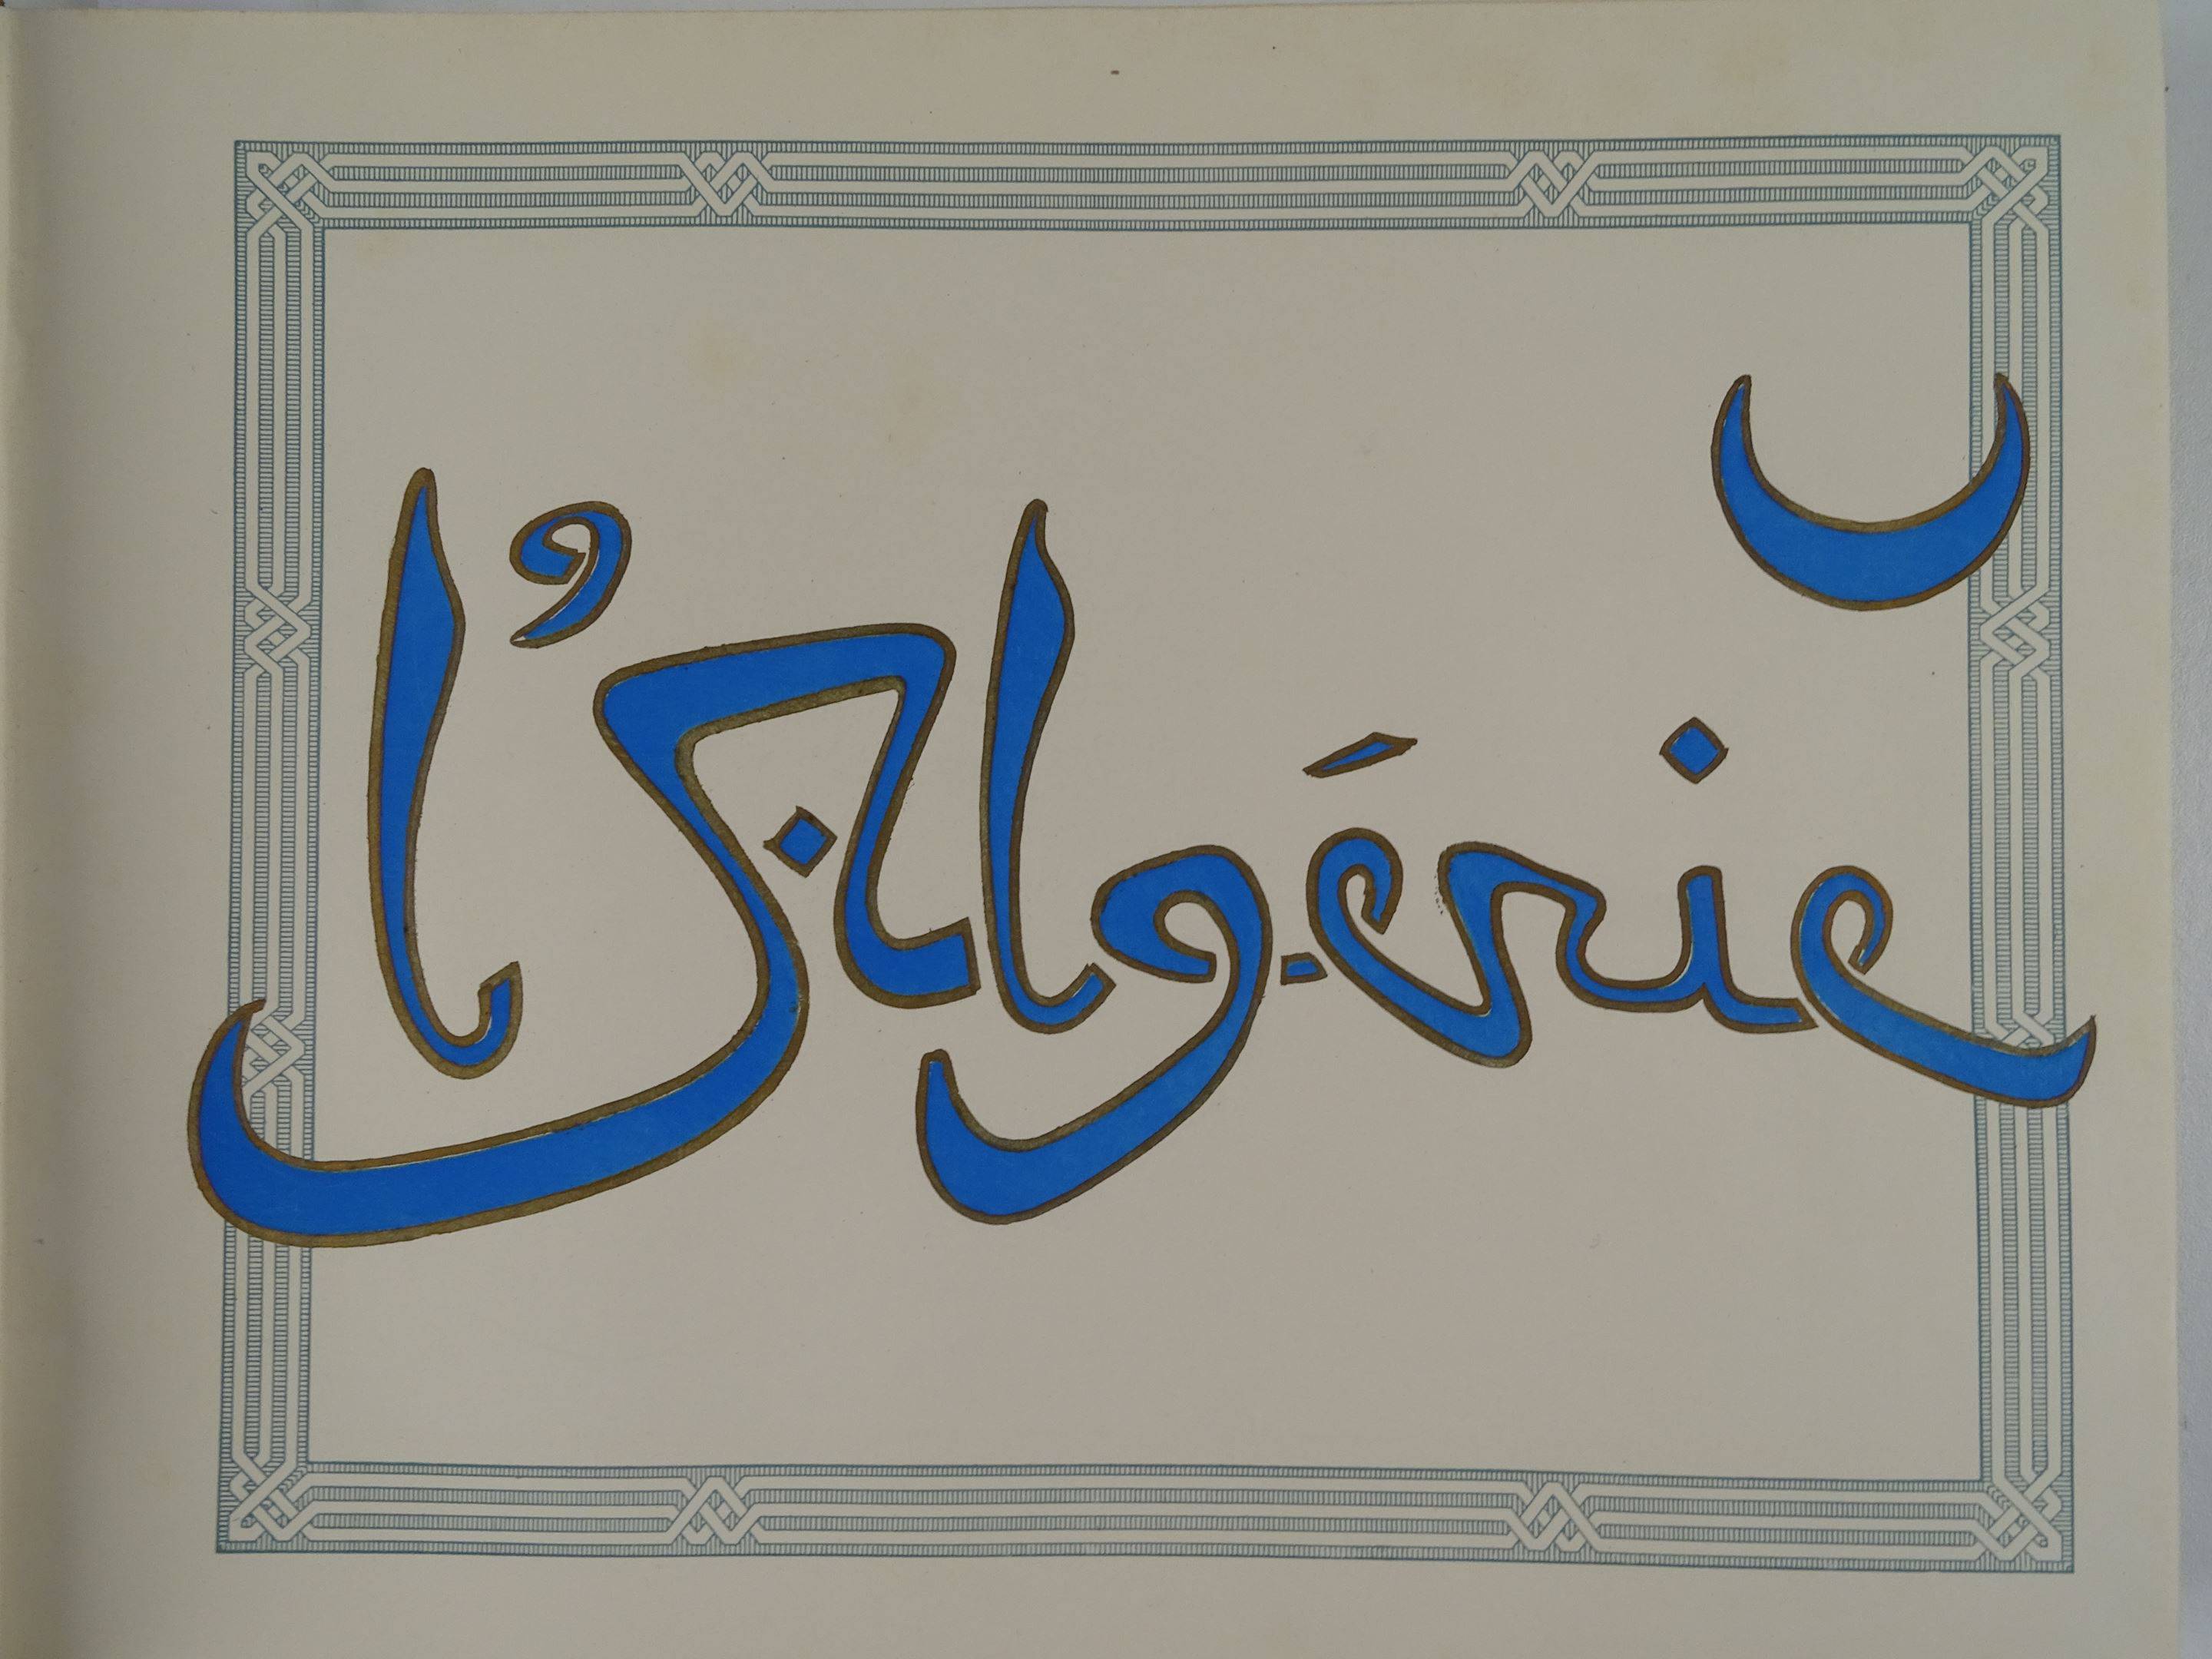 l'Algérie